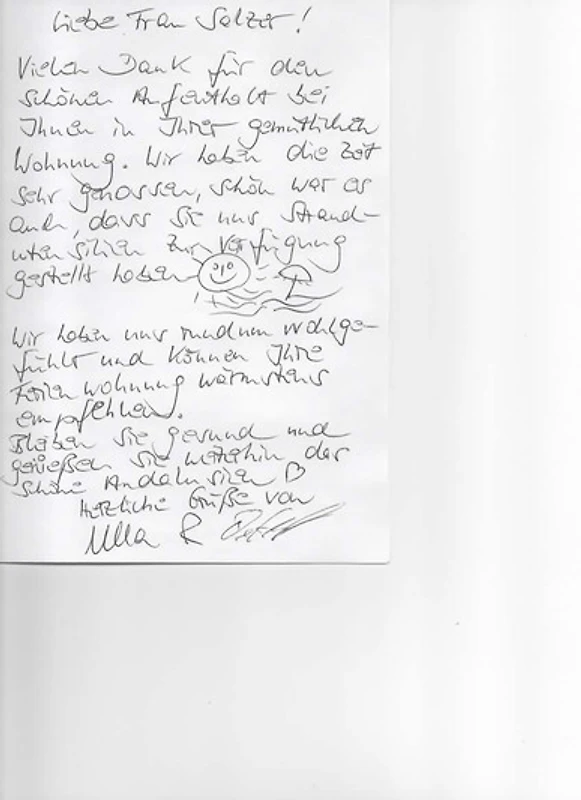 Liebe Frau Salzer!
Vielen Dank für den
schönen Aufenthalt bei
Ihnen in Ihrer gemütlichen
Wohnung. Wir haben die Zeit
sehr genossen, schön war es
auch, dass Sie uns Strand-
utensilien zur Verfügung
gestellt haben
Wir haben uns rundum wohlge-
fühlt und können Ihre
Ferienwohnung wärmstens
empfehlen.
Bleiben Sie gesund und
genießen Sie weiterhin das
schöne Andalusien
Herzliche Grüße von
Ulla &